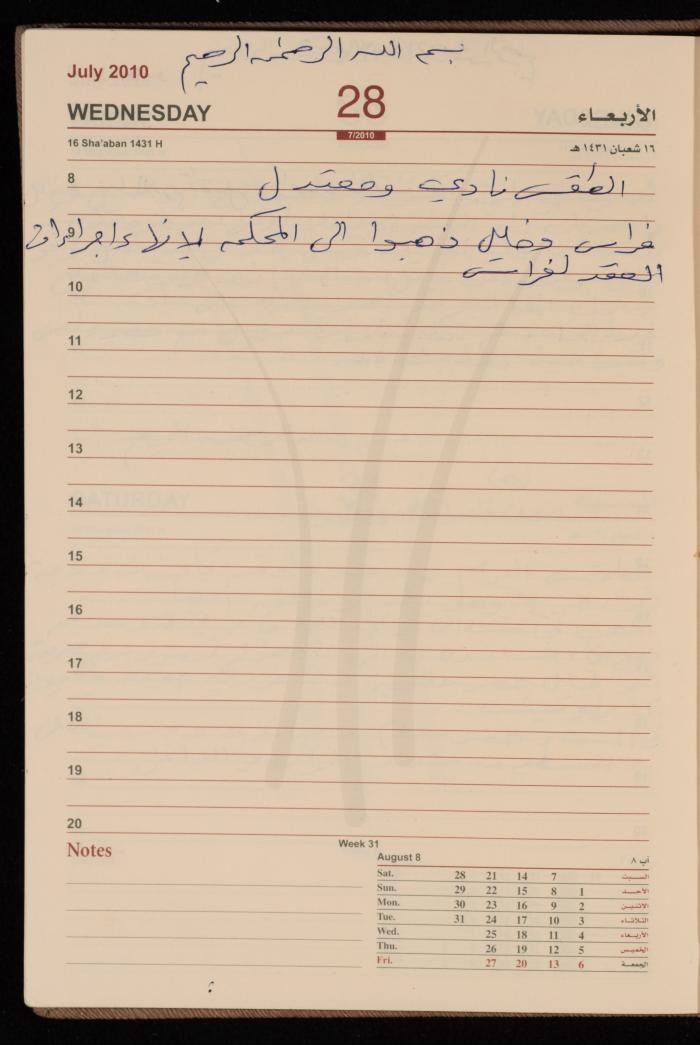 بسم الله الرحمن الرحيم
July 2010
WEDNESDAY 28 الأربعاء
7/2010
16 Sha'aban 1431 H ١٦ شعبان ١٤٣١ هـ
8 الطقس نادي ومعتدل
9 فراس وخليل ذهبوا الى المحكمه لإنهاء اجراءات
العقد لفراس
10
11
12
13
14
15
16
17
18
19
20
Notes
Week 31
August 8 آب ٨
Sat. 28 21 14 7 السبت
Sun. 29 22 15 8 1 الأحد
Mon. 30 23 16 9 2 الاثنين
Tue. 31 24 17 10 3 الثلاثاء
Wed. 25 18 11 4 الأربعاء
Thu. 26 19 12 5 الخميس
Fri. 27 20 13 6 الجمعة